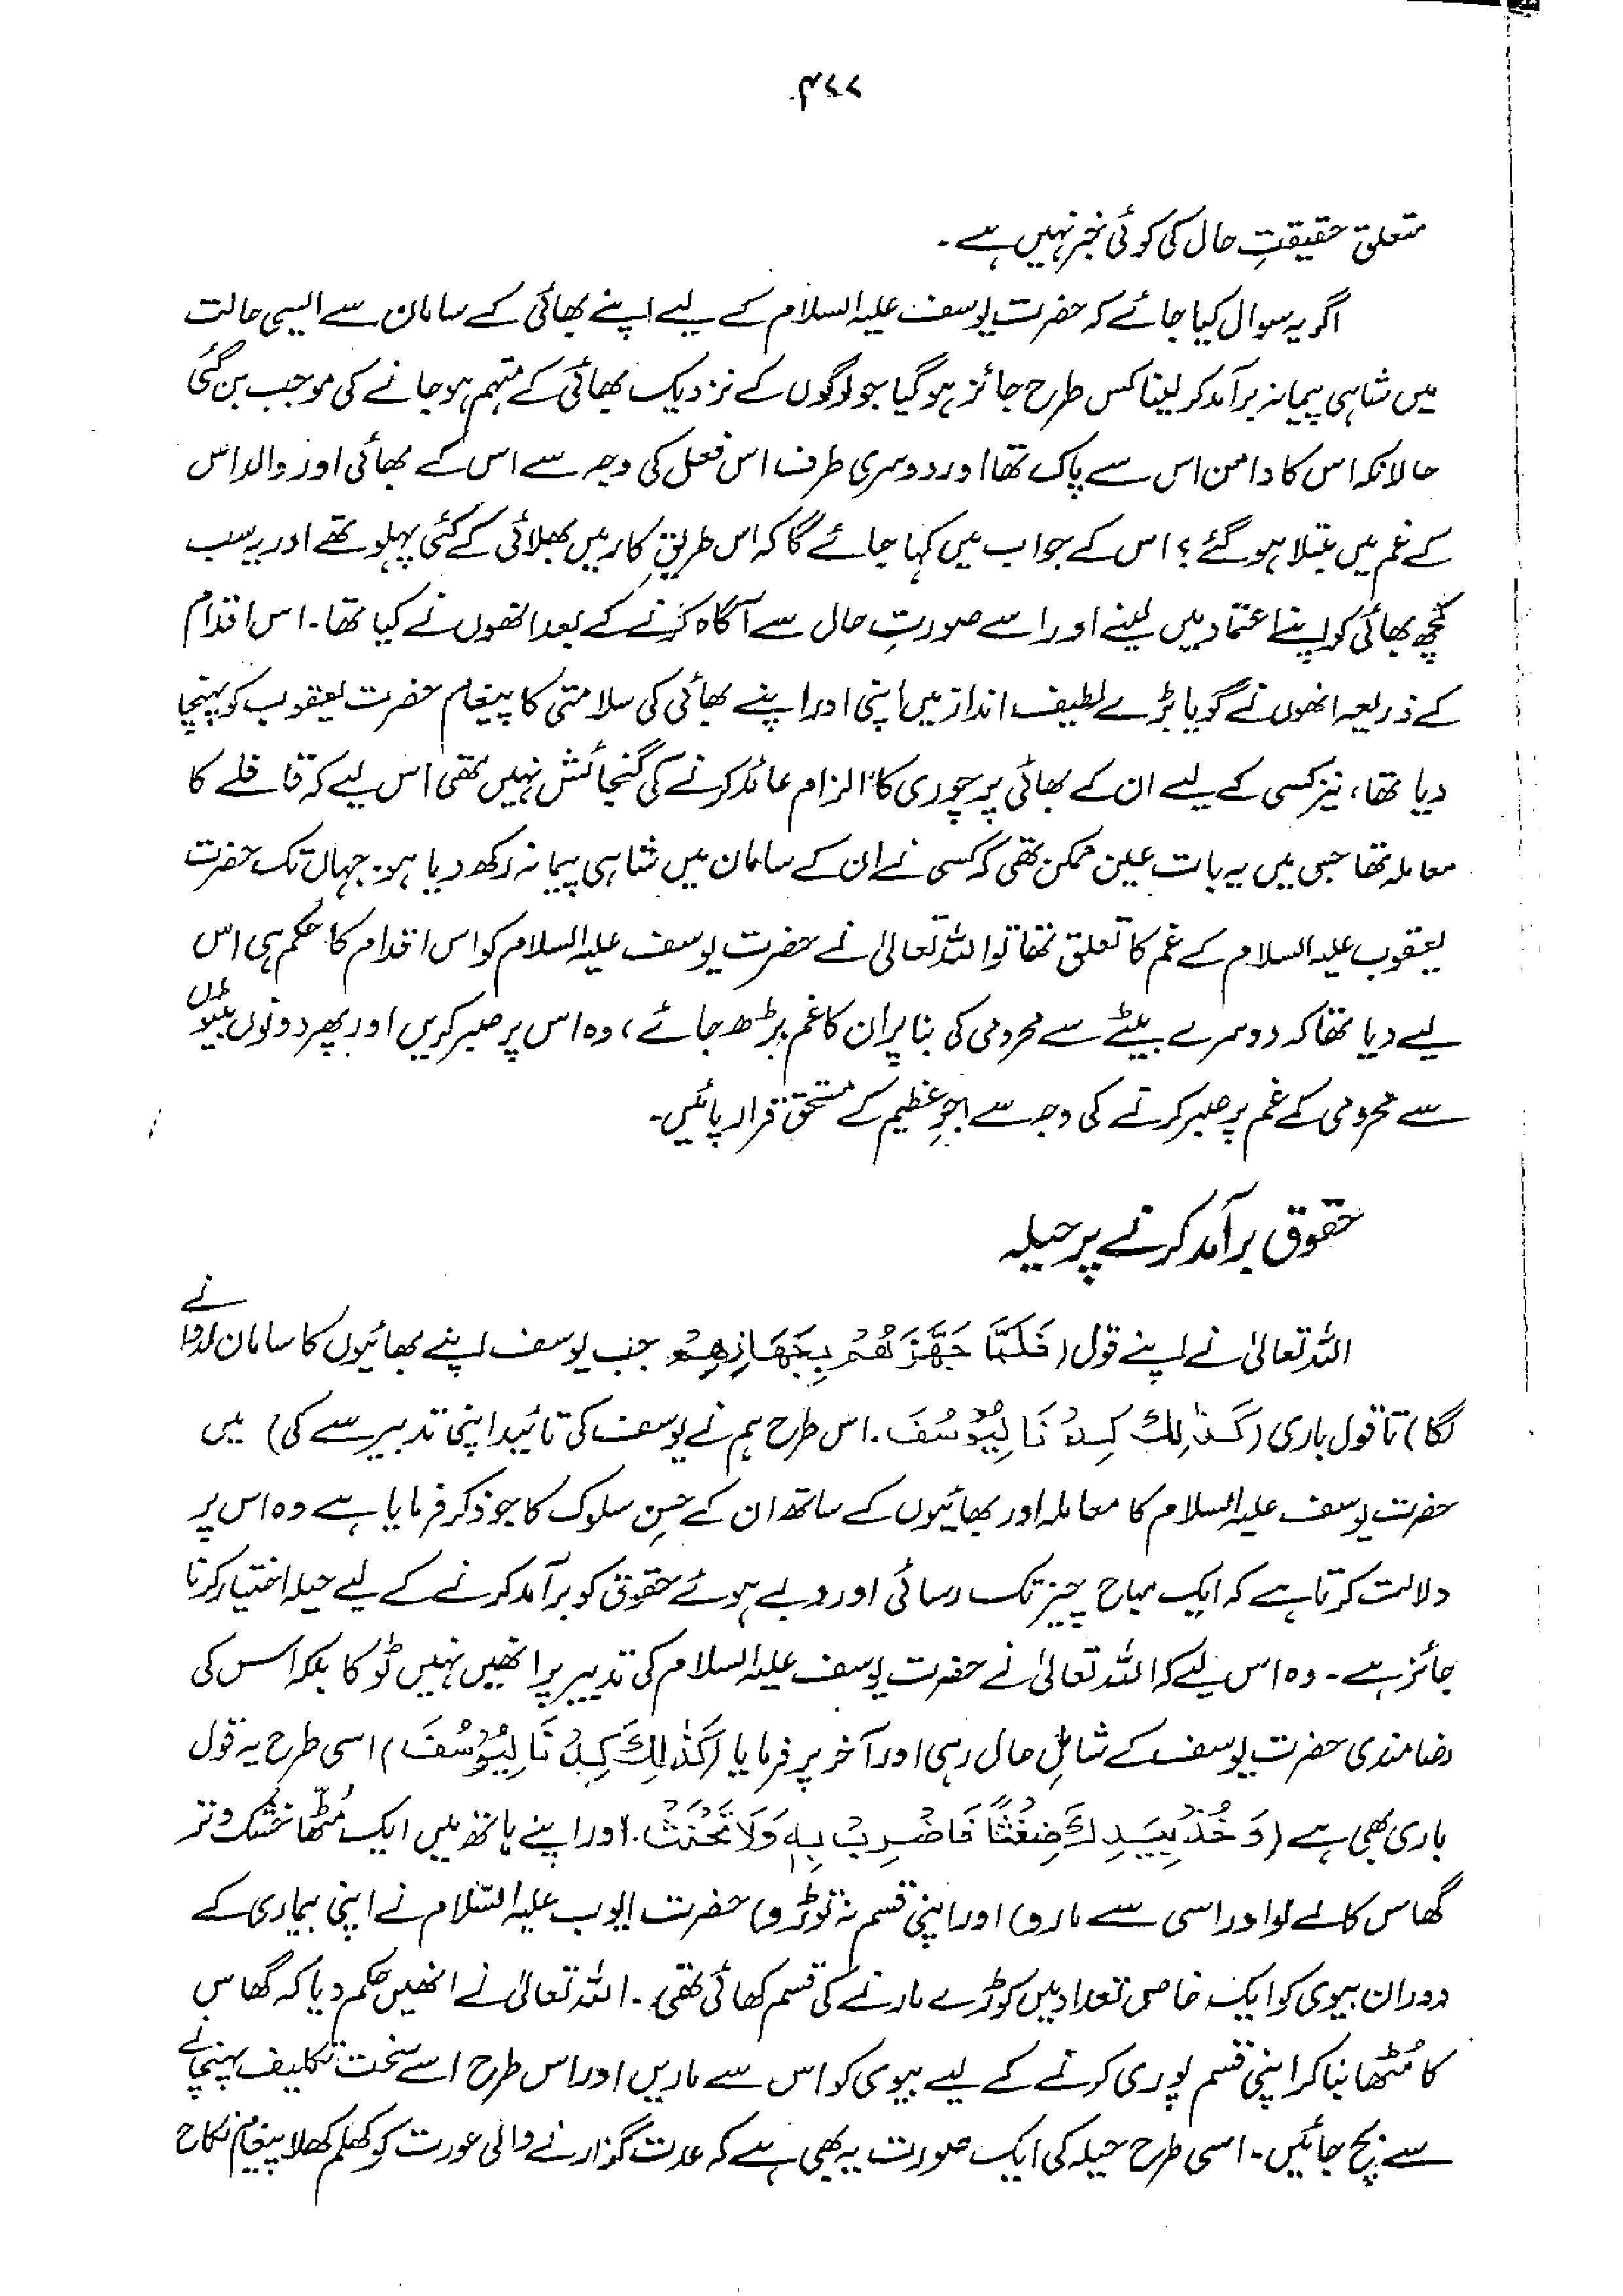 ۴۷۷
متعلق حقیقتِ حال کی کوئی خبر نہیں ہے۔
اگر یہ سوال کیا جائے کہ حضرت یوسف علیہ السلام کے لیے اپنے بھائی کے سامان سے ایسی حالت
میں شاہی پیمانہ برآمد کر لینا کس طرح جائز ہو گیا جو لوگوں کے نزدیک بھائی کے متہم ہو جانے کی موجب بن گئی
حالانکہ اس کا دامن اس سے پاک تھا اور دوسری طرف اس فعل کی وجہ سے اس کے بھائی اور والد اس
کے غم میں مبتلا ہو گئے؟ اس کے جواب میں کہا جائے گا کہ اس طریقِ کار میں بھلائی کے کئی پہلو تھے اور یہ سب
کچھ بھائی کو اپنے اعتماد میں لینے اور اسے صورتِ حال سے آگاہ کرنے کے بعد انھوں نے کیا تھا۔ اس اقدام
کے ذریعہ انھوں نے گویا بڑے لطیف انداز میں اپنی اور اپنے بھائی کی سلامتی کا پیغام حضرت یعقوب کو پہنچا
دیا تھا، نیز کسی کے لیے ان کے بھائی پر چوری کا الزام عائد کرنے کی گنجائش نہیں تھی اس لیے کہ قافلے کا
معاملہ تھا جس میں یہ بات عین ممکن تھی کہ کسی نے ان کے سامان میں شاہی پیمانہ رکھ دیا ہو۔ جہاں تک حضرت
یعقوب علیہ السلام کے غم کا تعلق تھا تو اللہ تعالیٰ نے حضرت یوسف علیہ السلام کو اس اقدام کا حکم ہی اس
لیے دیا تھا کہ دوسرے بیٹے سے محرومی کی بنا پر ان کا غم بڑھ جائے، وہ اس پر صبر کریں اور پھر دونوں بیٹوں
سے محرومی کے غم پر صبر کرنے کی وجہ سے اجرِ عظیم کے مستحق قرار پائیں۔
حقوق برآمد کرنے پر حیلہ
اللہ تعالیٰ نے اپنے قول (فَلَمَّا جَهَّزَهُمْ بِجَهَازِهِمْ جب یوسف اپنے بھائیوں کا سامان لدوانے
لگا) تا قول باری (كَذٰلِكَ كِدْنَا لِيُوْسُفَ۔ اس طرح ہم نے یوسف کی تائید اپنی تدبیر سے کی) میں
حضرت یوسف علیہ السلام کا معاملہ اور بھائیوں کے ساتھ ان کے حسنِ سلوک کا جو ذکر فرمایا ہے وہ اس پر
دلالت کرتا ہے کہ ایک مباح چیز تک رسائی اور دبے ہوئے حقوق کو برآمد کرنے کے لیے حیلہ اختیار کرنا
جائز ہے۔ وہ اس لیے کہ اللہ تعالیٰ نے حضرت یوسف علیہ السلام کی تدبیر پر انھیں نہیں ٹوکا بلکہ اس کی
رضامندی حضرت یوسف کے شاملِ حال رہی اور آخر پر فرمایا (كَذٰلِكَ كِدْنَا لِيُوْسُفَ) اسی طرح یہ قول
باری بھی ہے (وَخُذْ بِيَدِكَ ضِغْثًا فَاضْرِبْ بِهٖ وَلَا تَحْنَثْ۔ اور اپنے ہاتھ میں ایک مُٹّھا خشک و تر
گھاس کا لے لو اور اسی سے مارو، اور اپنی قسم نہ توڑو) حضرت ایوب علیہ السّلام نے اپنی بیماری کے
دوران بیوی کو ایک خاص تعداد میں کوڑے مارنے کی قسم کھائی تھی۔ اللہ تعالیٰ نے انھیں حکم دیا کہ گھاس
کا مُٹھا بنا کر اپنی قسم پوری کرنے کے لیے بیوی کو اس سے ماریں اور اس طرح اسے سخت تکلیف پہنچانے
سے بچ جائیں۔ اسی طرح حیلہ کی ایک صورت یہ بھی ہے کہ عدت گزارنے والی عورت کو کھلم کھلا پیغامِ نکاح